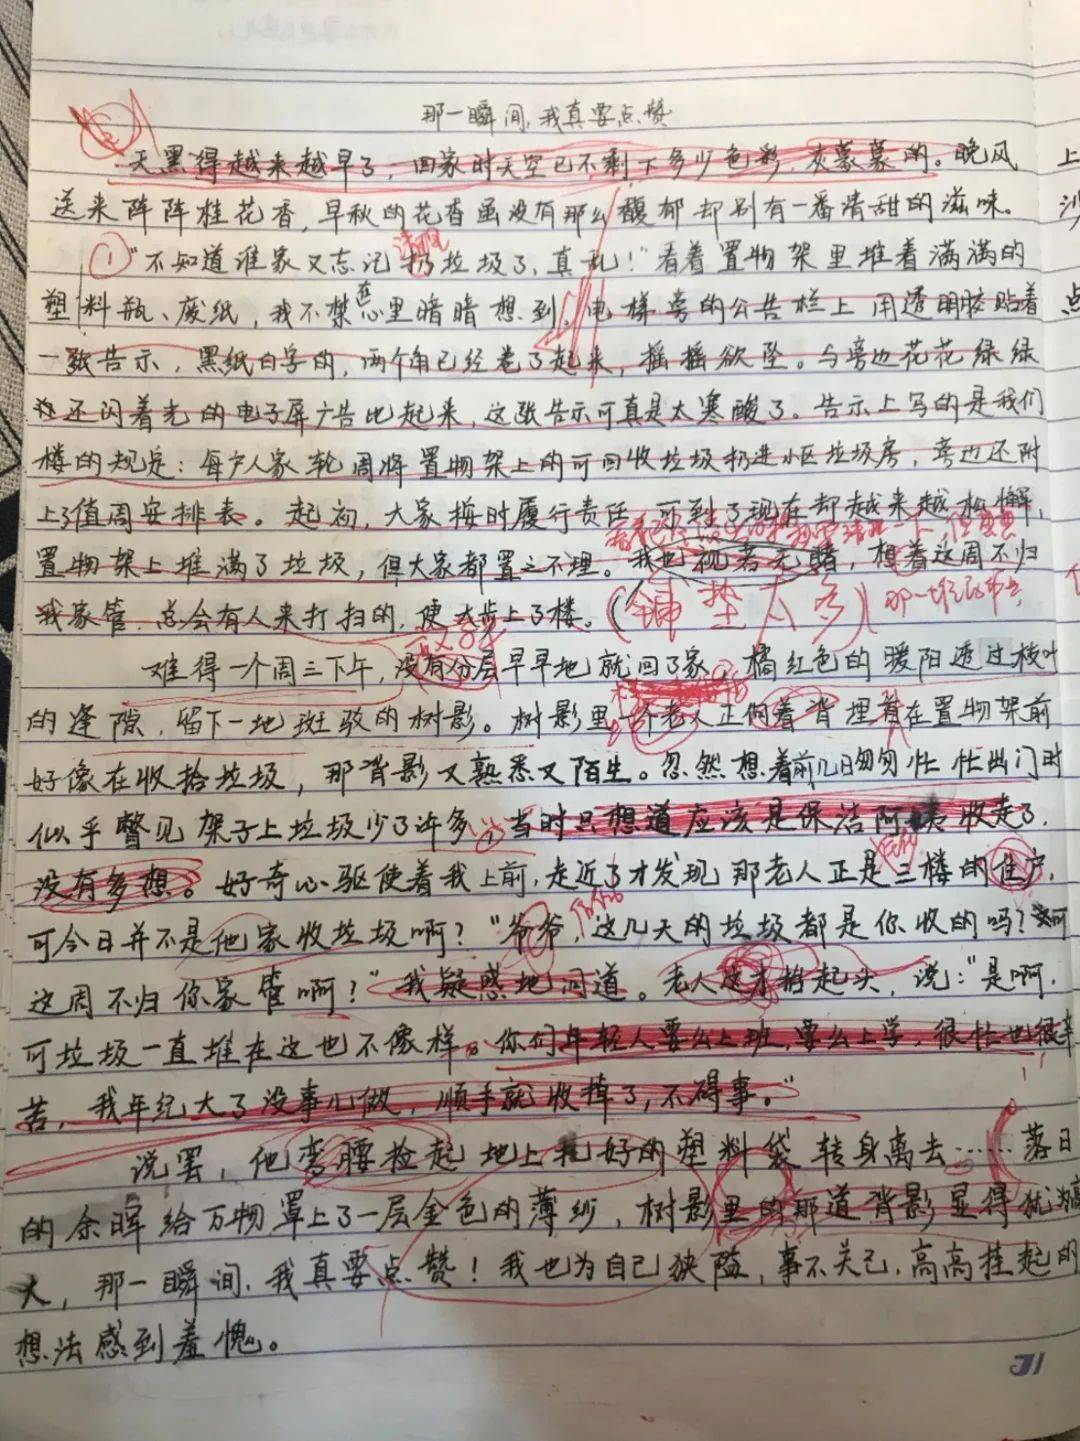 那一瞬间,我真要点赞
天黑得越来越早了,回家时天空已不剩下多少色彩,灰蒙蒙的。晚风
送来阵阵桂花香,早秋的花香虽没有那么馥郁却别有一番清甜的滋味。
① "不知道谁家又忘记扔垃圾了,真乱!"看着置物架里堆着满满的
塑料瓶、废纸,我不禁在心里暗暗想到。电梯旁的公告栏上用透明胶贴着
一张告示,黑纸白字的,两个角已经卷了起来,摇摇欲坠。与旁边花花绿绿
还闪着光的电子屏广告比起来,这张告示可真是太寒酸了。告示上写的是我们
楼的规定:每户人家轮周将置物架上的可回收垃圾扔进小区垃圾房,旁边还附
上了值周安排表。起初,大家按时履行责任,可到了现在却越来越松懈,
置物架上堆满了垃圾,但大家都置之不理。我也视若无睹,想着这周不归
我家管,总会有人来打扫的,便大步上了楼。(铺垫太多)
难得一个周三下午,没有分层早早地就回了家,橘红色的暖阳透过枝叶
的逢隙,留下一地斑驳的树影。树影里一个老人正佝着背埋着在置物架前
好像在收拾垃圾,那背影又熟悉又陌生。忽然想着前几日匆匆忙忙出门时
似乎瞥见架子上垃圾少了许多,当时只想道应该是保洁阿姨收走了,
没有多想。好奇心驱使着我上前,走近了才发现那老人正是三楼的住户,
可今日并不是他家收垃圾啊?"爷爷,这几天的垃圾都是你收的吗?可
这周不归你家管啊?"我疑惑地问道。老人这才抬起头,说:"是啊,
可垃圾一直堆在这也不像样。你们年轻人要么上班,要么上学,很忙也很辛
苦,我年纪大了没事儿做,顺手就收掉了,不碍事。"
说罢,他弯腰捡起地上扎好的塑料袋转身离去……落日
的余晖给万物罩上了一层金色的薄纱,树影里的那道背影显得犹为高
大,那一瞬间,我真要点赞!我也为自己狭隘,事不关己,高高挂起的
想法感到羞愧。
31
上
沙
点